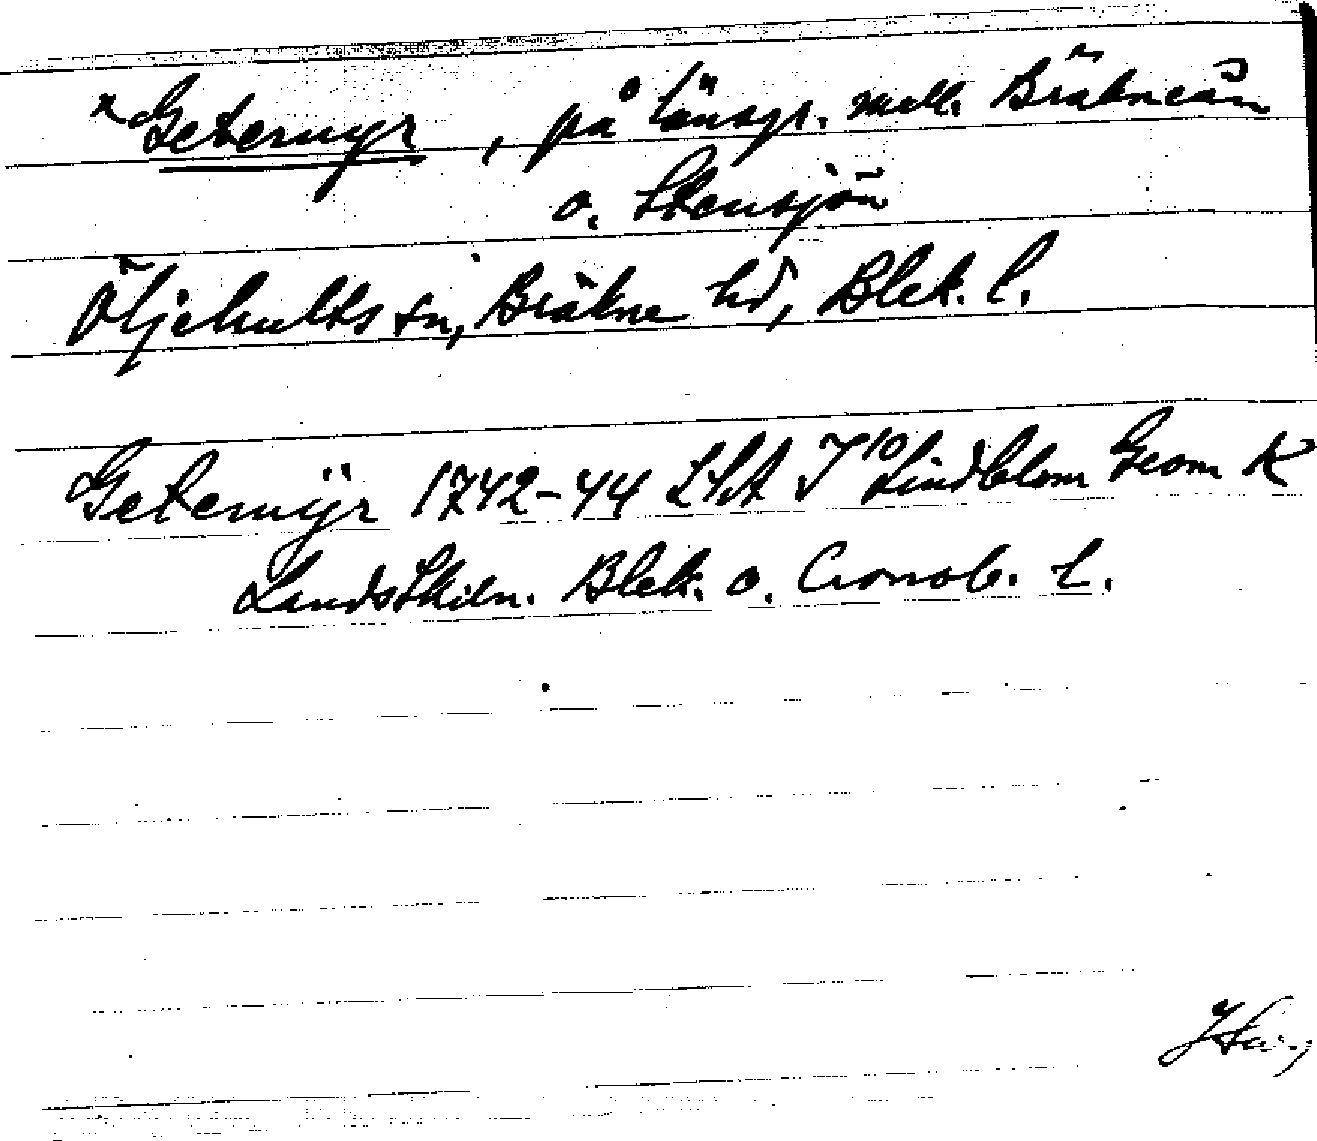 *Getemyr, på länsgr. mell. Bräkneån
o. Stensjön
Öljehults sn, Bräkne hd, Blek. l.
Getemÿr 1742-44 LSA I 10 Lindblom Geom K
Landsskiln. Blek. o. Cronob. l.